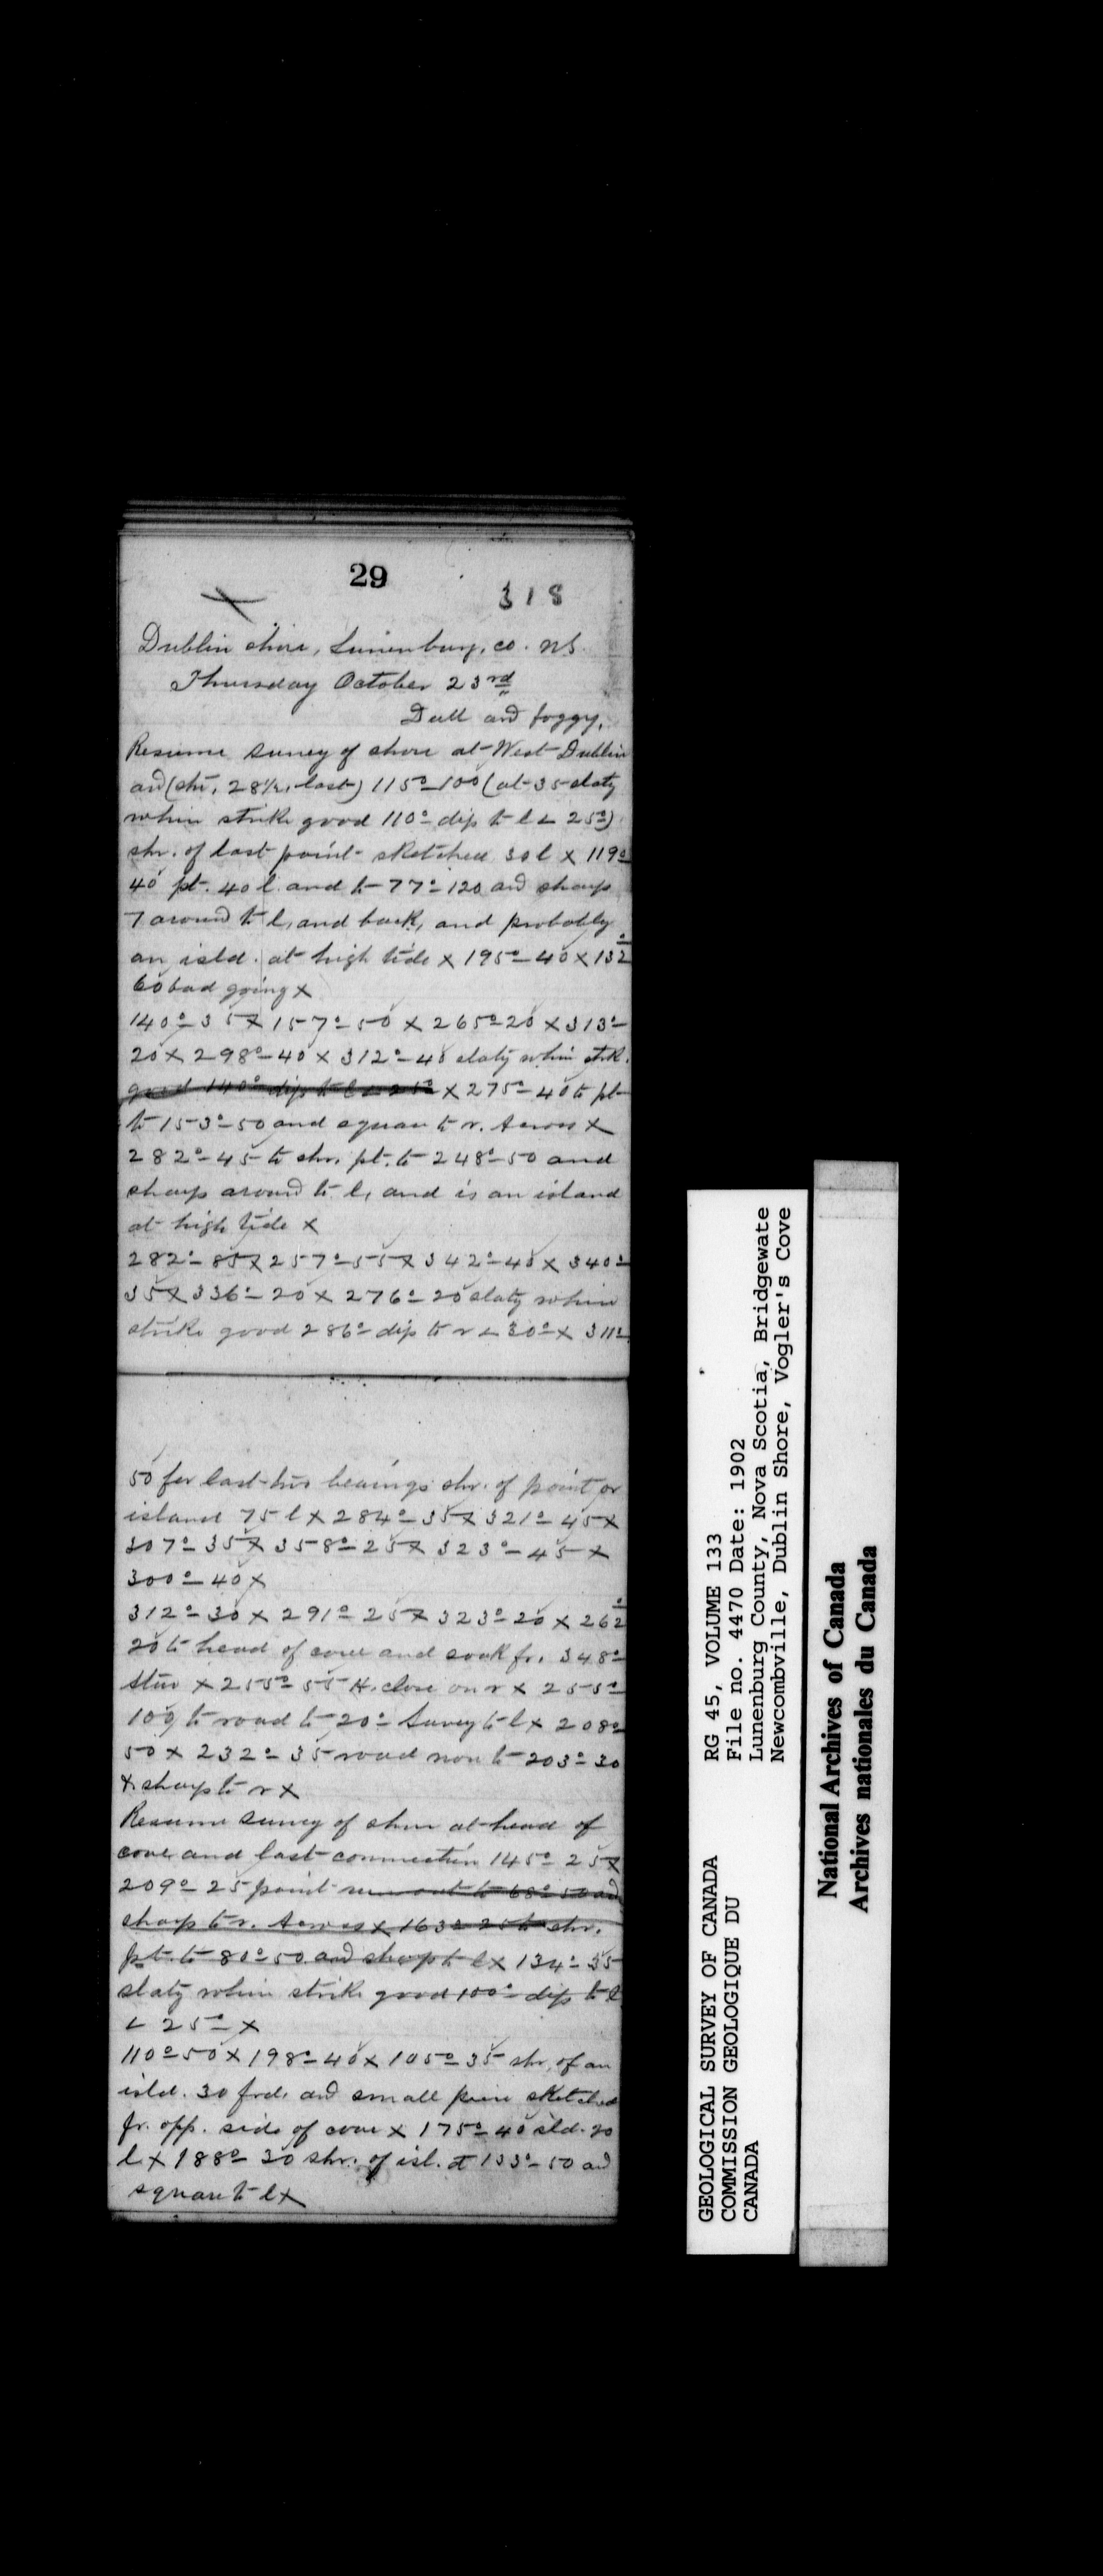 29
318
Dublin shore, Lunenburg, co. N.S.
Thursday October 23rd
Dull and foggy.
Resume survey of shore at West Dublin
and (shr. 28½, last) 115°-100 (at 35 slaty
whin strike good 110° dip to l ∠ 25°)
shr. of last point sketched 30 l x 119°
40 pt. 40 l. and to 77°-120 and sharp
7 around to l, and back, and probably
an isld. at high tide x 195°-40 x 132°
60 bad going x
140°-35 x 157°-50 x 265°-20 x 313°-
20 x 298°-40 x 312°-40 slaty whin strk.
good 140° dip to l ∠ 25° x 275°-40 to pt
to 153°-50 and square to r. Across x
282°-45 to shr. pt. to 248°-50 and
sharp around to l, and is an island
at high tide x
282°-85 x 257°-55 x 342°-40 x 340°-
35 x 336°-20 x 276°-20 slaty whin
strike good 286° dip to r ∠ 30° x 311°
50 for last two bearings shr. of point or
island 75 l x 284°-35 x 321°-45 x
307°-35 x 358°-25 x 323°-45 x
300°-40 x
312°-30 x 291°-25 x 323°-20 x 262°
20 to head of cove and soak fr. 348°
x 255°-55 H. close on r x 255°-
100 to road to 20° Survey to l x 208°
50 x 232°-35 road non to 203°-30
x sharp to r x
Resume survey of shore at head of
cove and last connection 145°-25 x
209°-25 point run out to 68°-50 and
sharp to r. Across x 163°-25 to shr.
pt. to 80°-50 and sharp to l x 134°-35
slaty whin strike good 100° dip to l
∠ 25° x
110°-50 x 198°-40 x 105°-35 shr. of an
isld. 30 frd. and small sketched
fr. opp. side of cove x 175°-40 sld. 20
l x 188°-30 shr. of isl. at 133°-50 and
square to l x
GEOLOGICAL SURVEY OF CANADA
COMMISSION GEOLOGIQUE DU
CANADA
RG 45, VOLUME 133
File no. 4470 Date: 1902
Lunenburg County, Nova Scotia, Bridgewate
Newcombville, Dublin Shore, Vogler's Cove
National Archives of Canada
Archives nationales du Canada